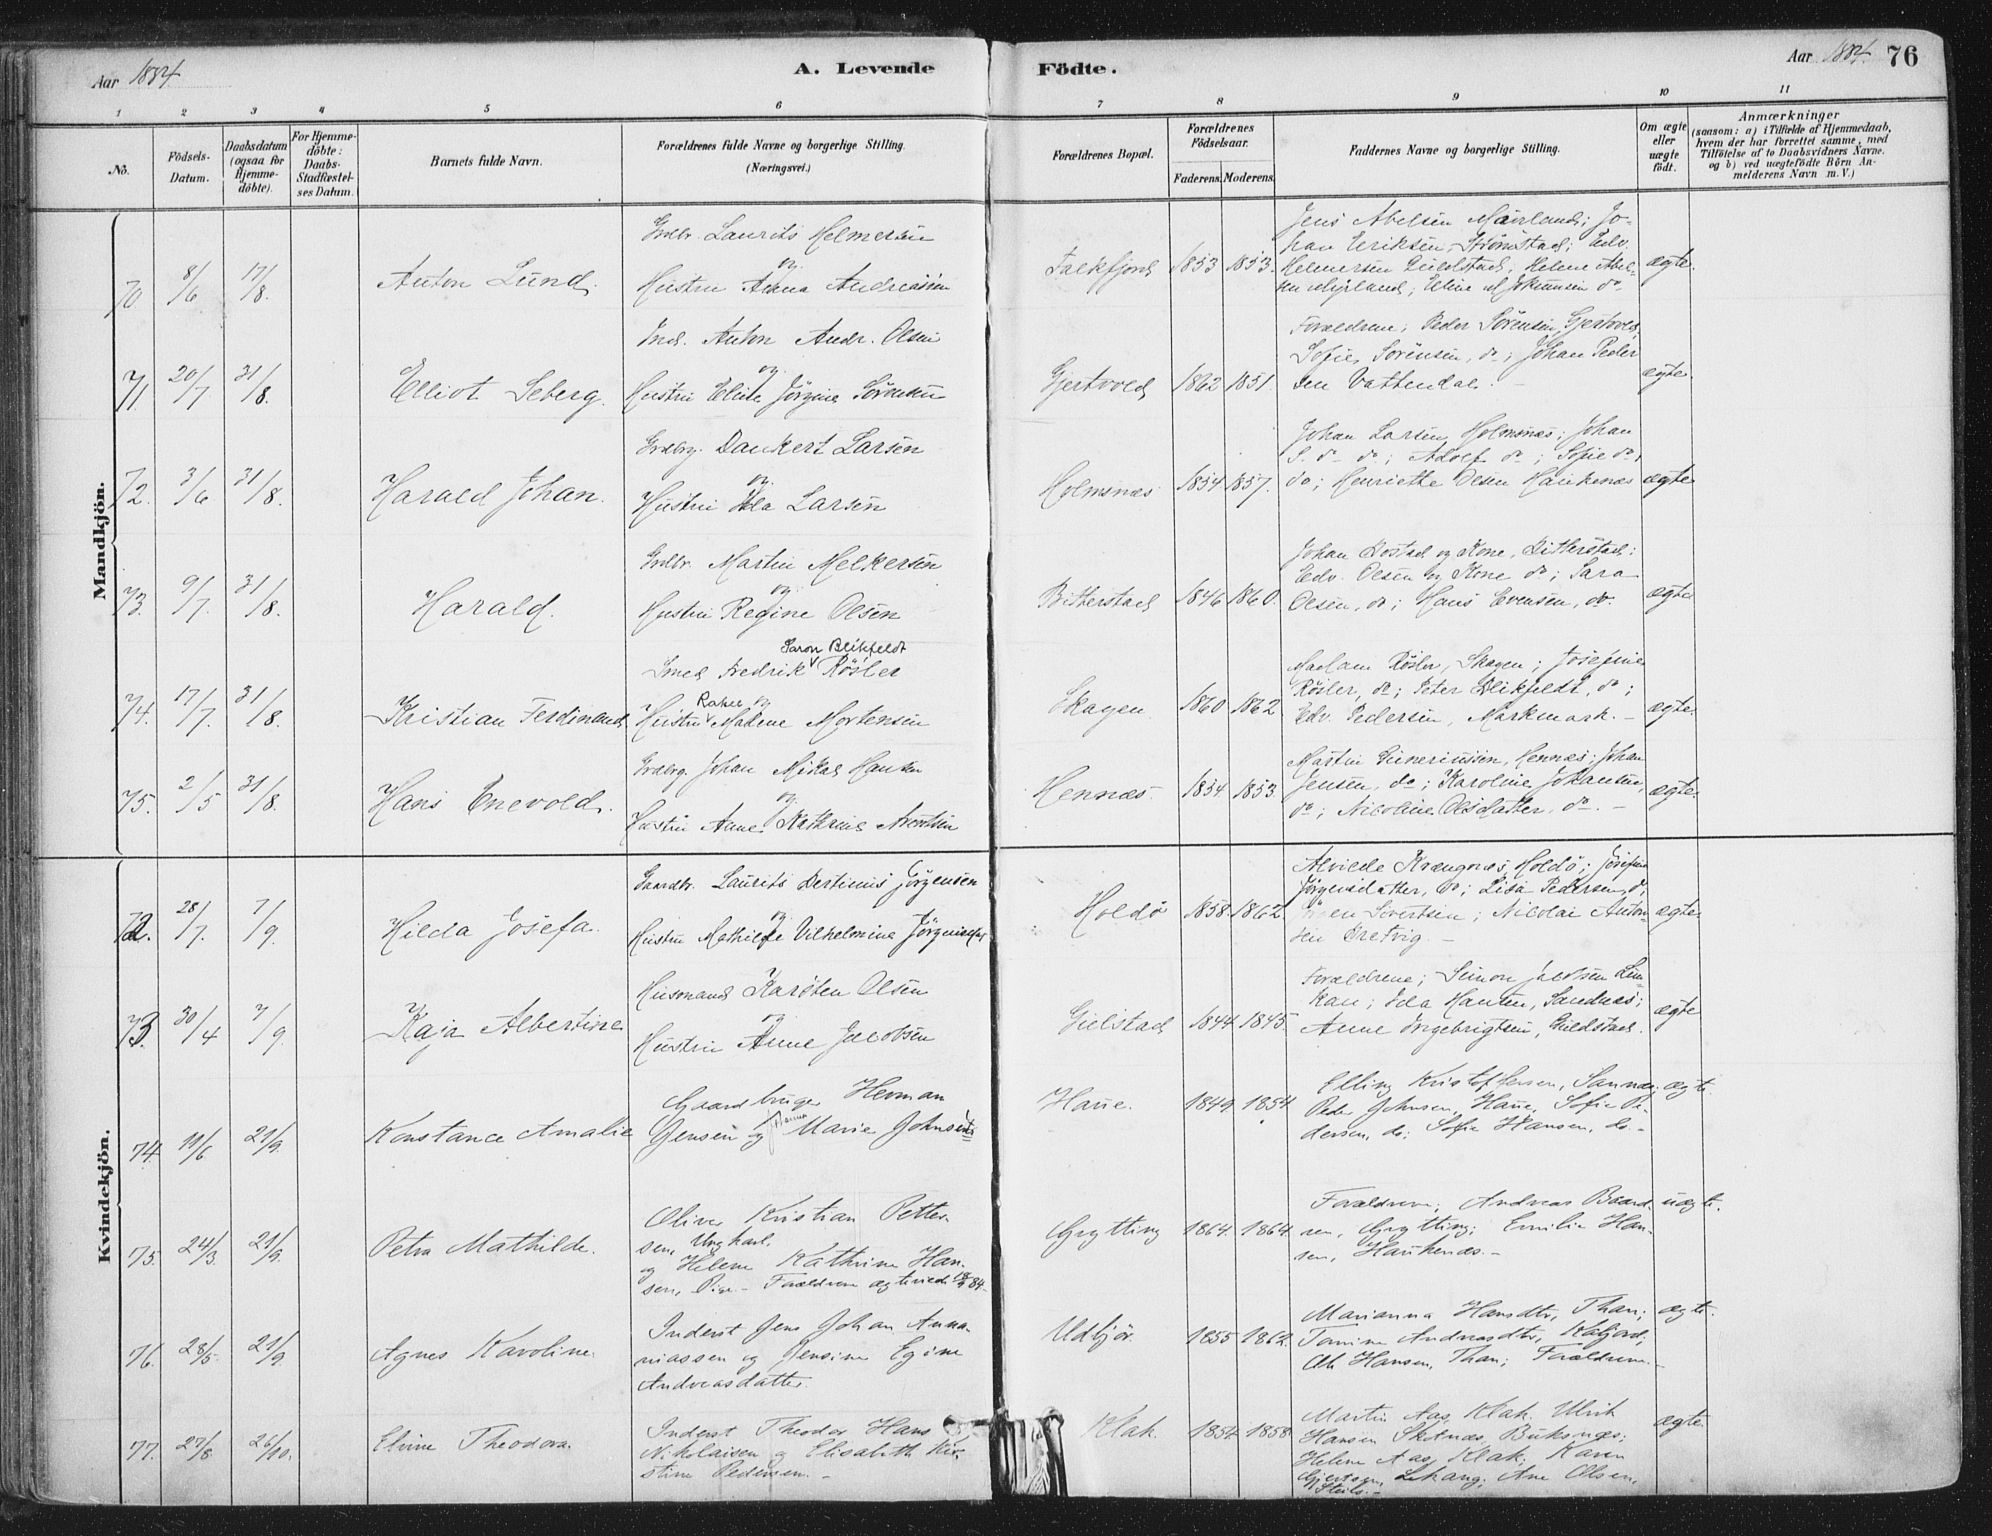 Aar 1884.
A. Levende Födte.
Aar 1884. 76
1 2 3 4 5 6 7 8 9 10 11
No.
Födsels-Datum.
Daabsdatum (ogsaa for Hjemme-döbte).
For Hjemme-döbte: Daabs-Stadfæstel-ses Datum.
Barnets fulde Navn.
Forældrenes fulde Navne og borgerlige Stilling. (Næringsvei.)
Forældrenes Bopæl.
Forældrenes Födselsaar.
Faderens. Moderens.
Faddernes Navne og borgerlige Stilling.
Om ægte eller uægte födt.
Anmærkninger
(saasom: a) i Tilfælde af Hjemmedaab, hvem der har forrettet samme, med Tilföielse af to Daabsvidners Navne. og b) ved uægtefödte Börn An-melderens Navn m.V.)
Mandkjön.
70. 8/6 17/8. Anton Lund.
Grdbr. Laurits Helmersen
og
Hustru Anna Andreassen
Falkfjord 1853 1853.
Jens Abelsen Myrland; Jo-
han Eriksen, Strömstad; Edv.
Helmersen Guldstad; Helene Abel-
sen Myrland; Eline do
ægte.
71. 20/7 31/8. Elliot Seberg.
Ind. Anton Andr. Olsen
og
Hustru Elide Jörgine Sörensen
Gjertvold 1862 1851.
Forældrene; Peder Sörensen, Gjertvold,
Sofie Sörensen, do; Johan Peder
sen Vattendal. –
ægte.
72. 3/6 31/8. Harald Johan.
Grdbrg. Dankert Larsen
og
Hustru Ida Larsen
Holmsnæs 1854 1857.
Johan Larsen, Holmsnæs; Johan
do do; Adolf do; Sofie do,
do; Henriette Olsen Haukenæs
ægte
73. 9/7. 31/8. Harald.
Grdbr. Martin Melkersen
og
Hustru Regine Olsen
Bitterstad 1846 1860.
Johan Bostad og Kone, Bitterstad;
Edv. Olsen og Kone do; Sara
Olsen, do; Hans Evensen, do.
ægte
74. 17/7. 31/8. Kristian Ferdinand,
Saron Blikfeldt
Smed Fredrik Rösler
Rakel og
Hustru Malene Mortensen
Skagen 1860 1862
Madam Rösler, Skagen; Josefine
Rösler, do; Peter Blikfeldt, do;
Edv. Pedersen, Markmark. –
ægte.
75. 2/5 31/8. Hans Enevold.
Grdbrg. Johan Mikal Hansen
og
Hustru Anne Kathrine
Hennæs. 1854 1853
Martin Hennæs; Johan
Jensen, do; Karoline Johansen,
do; Nicoline Olsdatter, do. –
ægte.
Kvindekjön.
72. 28/7. 7/9. Hilda Josefa.
Gaardbr. Laurits Bertinius Jörgensen
og
Hustru Mathilde Vilhelmina Jörgensen
Holdö 1858. 1862.
Alvilde Krængnæs, Holdö; Josefine
Jörgensdatter, do; Lisa Pedersen, do,
Sivertsen; Nicolai Anton-
sen Bretvig. –
ægte.
73. 30/4 7/9. Kaja Albertine
Husmand Karsten Olsen
og
Hustru Anne Jacobsen
Gulstad 1844 1845.
Forældrene; Simon Jacobsen
Ida Hansen, Sandnæs;
Anne Ingebrigtsen, Guldstad.
ægte
74. 11/6 21/9. Konstance Amalie
Gaardbruger Herman
Jensen og Hanna Marie Johnsen
Haue. 1849. 1854.
Elling Kristoffersen, Sannæs;
Peder Johnsen, Haue, Sofie Pe-
dersen, do; Sofie Hansen, do. –
ægte
75. 24/3. 21/9. Petra Mathilde.
Oliver Kristian Petter-
sen, Ungkarl.
og Helene Kathrine Han-
sen, Pige. – Forældrene ægteviede 84.
Grytting 1864. 1864.
Forældrene; Andreas Baard-
sen, Grytting; Emilie Han-
sen, Haukenæs. –
uægte.
76. 28/5. 21/9. Agnes Karoline.
Inderst Jens Johan Anna-
niassen og Jensine Egine
Andreasdatter.
Udbjör. 1855 1862.
Marianna Hansdtr, Than;
Tomine Andreasdtr, Kaljord;
Ole Hansen, Than; Forældrene. –
ægte.
77. 27/8. 26/10. Elvine Theodora.
Inderst Theodor Hans
Nikolaisen og Elisabeth Kir-
stine Pedersen. –
Klak. 1854. 1858.
Martin Aas, Klak. Ulrik
Hansen Skotnæs, Buksnæs;
Helene Aas, Klak; Karen
Gjertsen, Lekang; Ane Olsen,
Steils. –
ægte